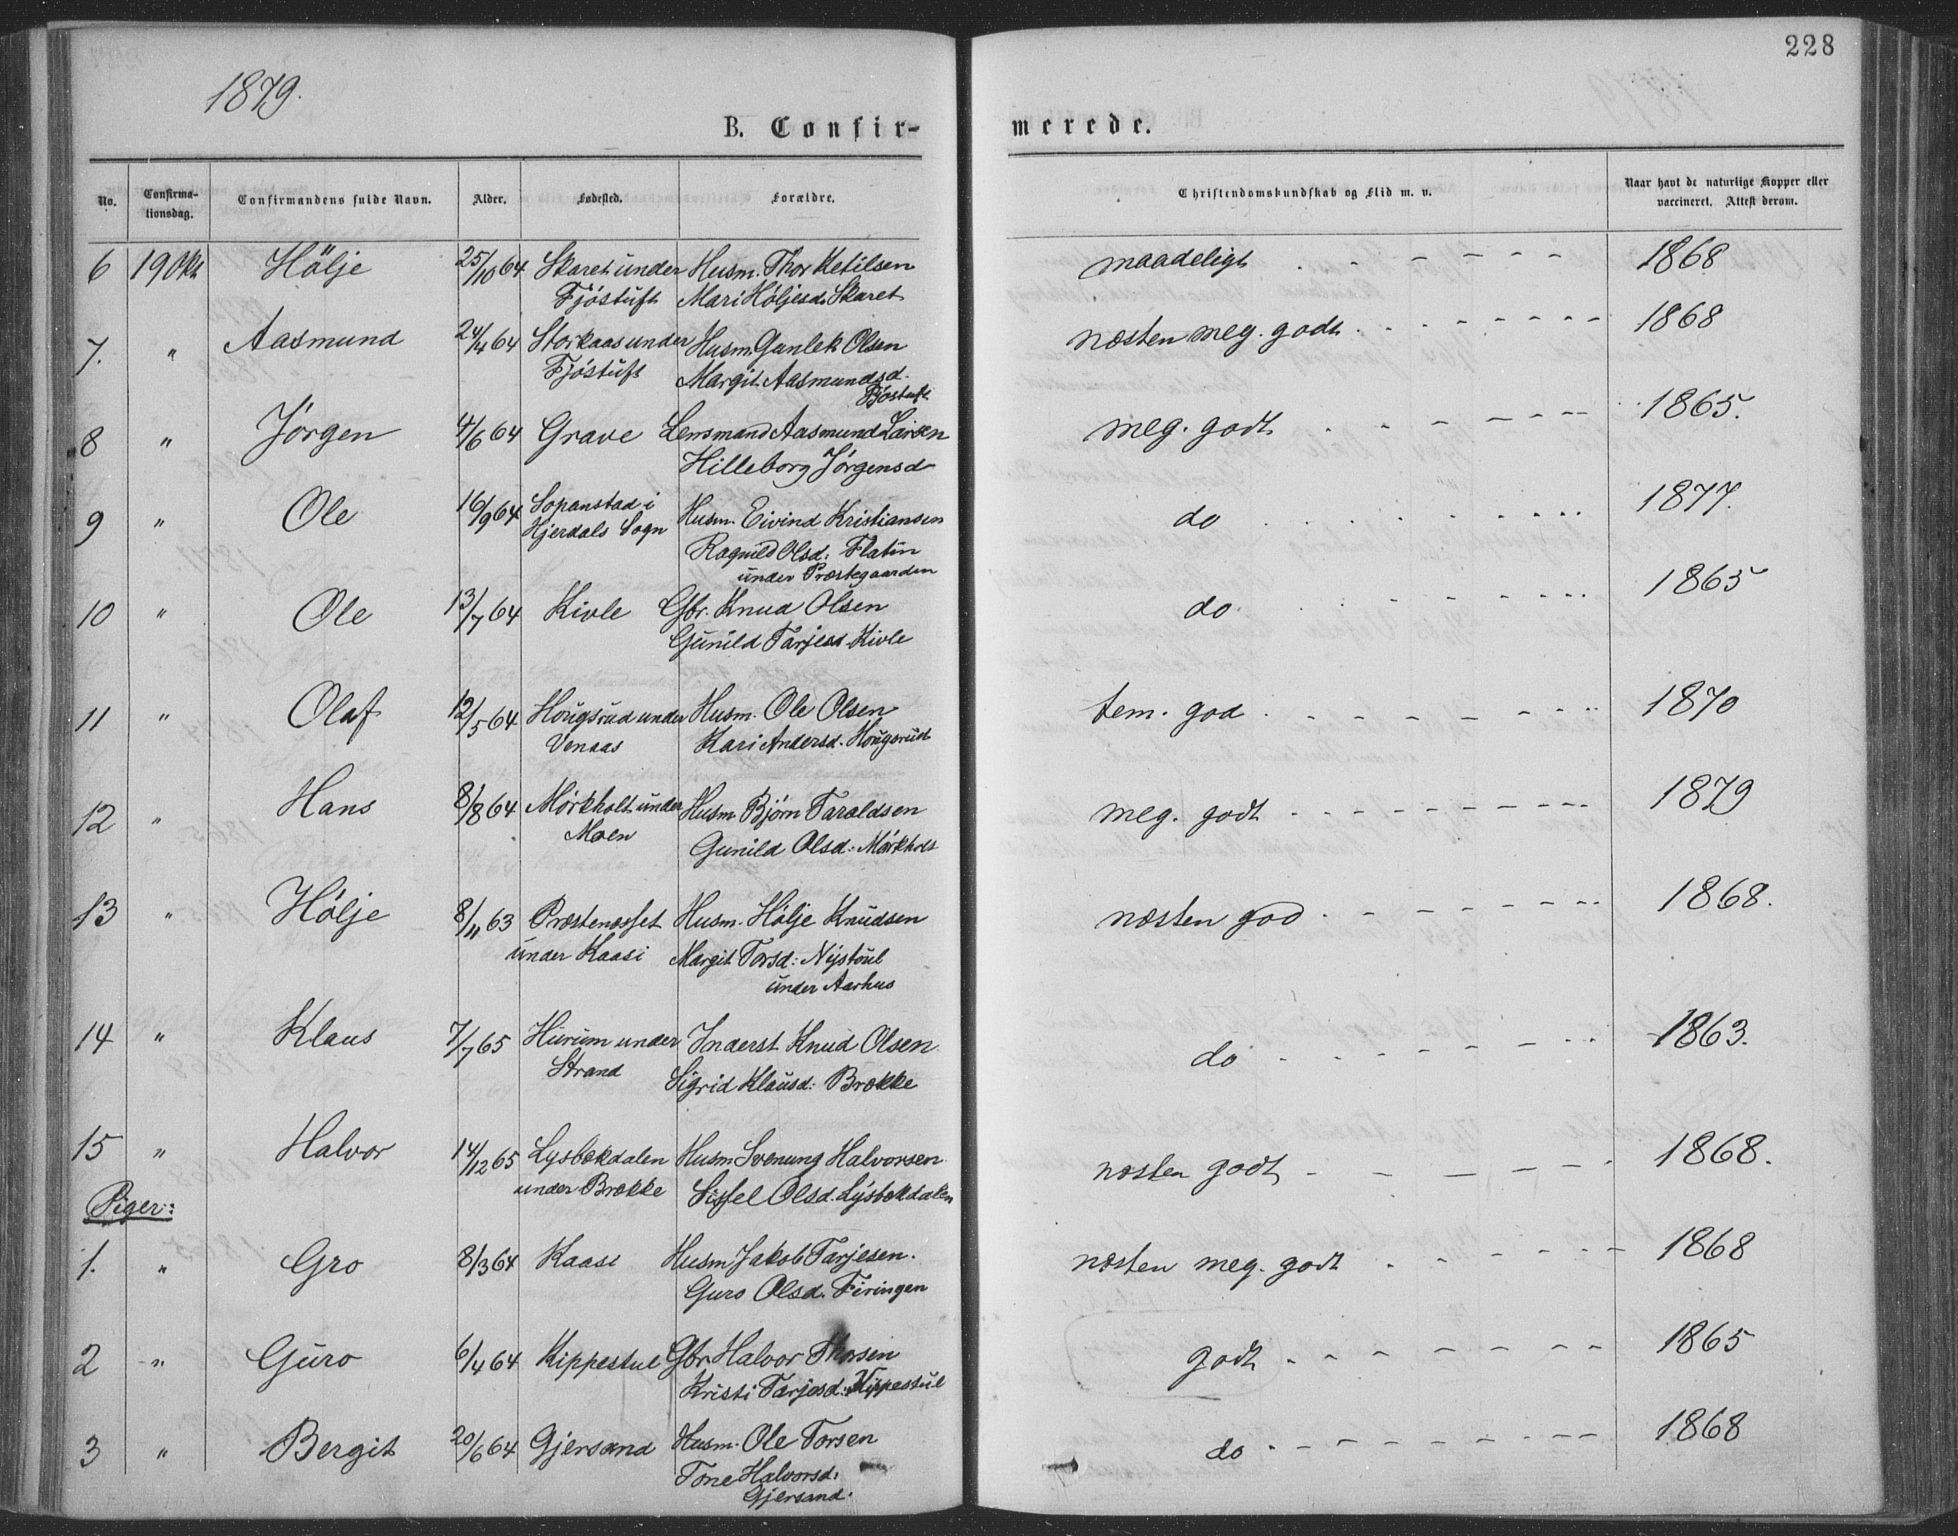 228
1879.
B. Confir-
merede.
No. Confirma-tionsdag. Confirmandens fulde Navn. Alder. Fødested. Forældre. Christendomskundskab og Flid m. v. Naar havt de naturlige Kopper eller vaccineret. Attest derom.
6 19 Okt Hölje 25/10 64 Skaret under Husm. Thor Ketilsen maadeligt - - - - - - 1868
Fjöstuft Mari Høljesd. Skaret
7. " Aasmund 24/4 64 Storkaas under Husm. Gunlek Olsen næsten meg. godt - - - - - - 1868
Fjöstuft Margit Aasmundsd.
Fjöstuft
8 " Jørgen 4/6 64 Grave Lensmand Aasmund Larsen meg. godt - - - - - - 1865.
Hilleborg Jørgensd
9 " Ole 16/9 64 Sopanstad i Husm. Eivind Kristiansen do - - - - - - 1877.
Hjerdals Sogn Ragnild Olsd: Flatin
under Præstegaarden
10 " Ole 13/7 64 Kivle Gbr. Knud Olsen do - - - - - - 1865
Gunild Tarjesd. Kivle
11 " Olaf 12/5 64 Hougsrud under Husm. Ole Olsen tem. god - - - - - - 1870
Venaas Kari Andersd. Hougsrud
12 " Hans 8/8 64 Mørkholt under Husm. Bjørn Taraldsen meg. godt - - - - - - 1879
Moen Gunild Olsd: Mørkholt
13 " Hölje 8/11 63 Præstenæsset Husm. Hölje Knudsen næsten god - - - - - - 1868.
under Kaasi Margit Torsd: Nystöul
under Aarhus
14 " Klaus 7/7 65 Hurum under Inderst Knud Olsen do - - - - - - 1863.
Strand Sigrid Klausd: Brække
15 " Halvor 14/12 65 Lysbækdalen Husm Svenung Halvorsen næsten godt - - - - - - 1868.
under Brække Sissel Olsd. Lysbækdalen
Piger:
1. " Gro 8/3 64 Kaasi Husm Jakob Tarjesen. næsten meg. godt - - - - - - 1868
Guro Olsd. Firingen
2 " Guro 6/4 64 Kippestul Gbr Halvor Thorsen godt - - - - - - 1865
Kristi Tarjesd: Kippestul
3 " Bergit 20/6 64 Gjersand Husm. Ole Torsen do - - - - - - 1868
Tone Halvorsd:
Gjersand.